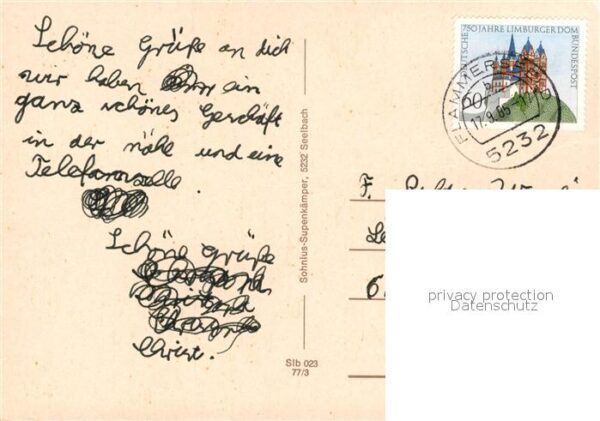 Schöne Grüße an dich
wir haben ein
ganz schönes Geschäft
in der nähe und eine
Telefonzelle
Schöne Grüße
Christ.
Sohnius-Supenkämper, 5232 Seelbach
Slb 023
77/3
750 JAHRE LIMBURGER DOM
DEUTSCHE BUNDESPOST
60
FLAMMERSFELD
17.9.85
5232
F.
privacy protection
Datenschutz